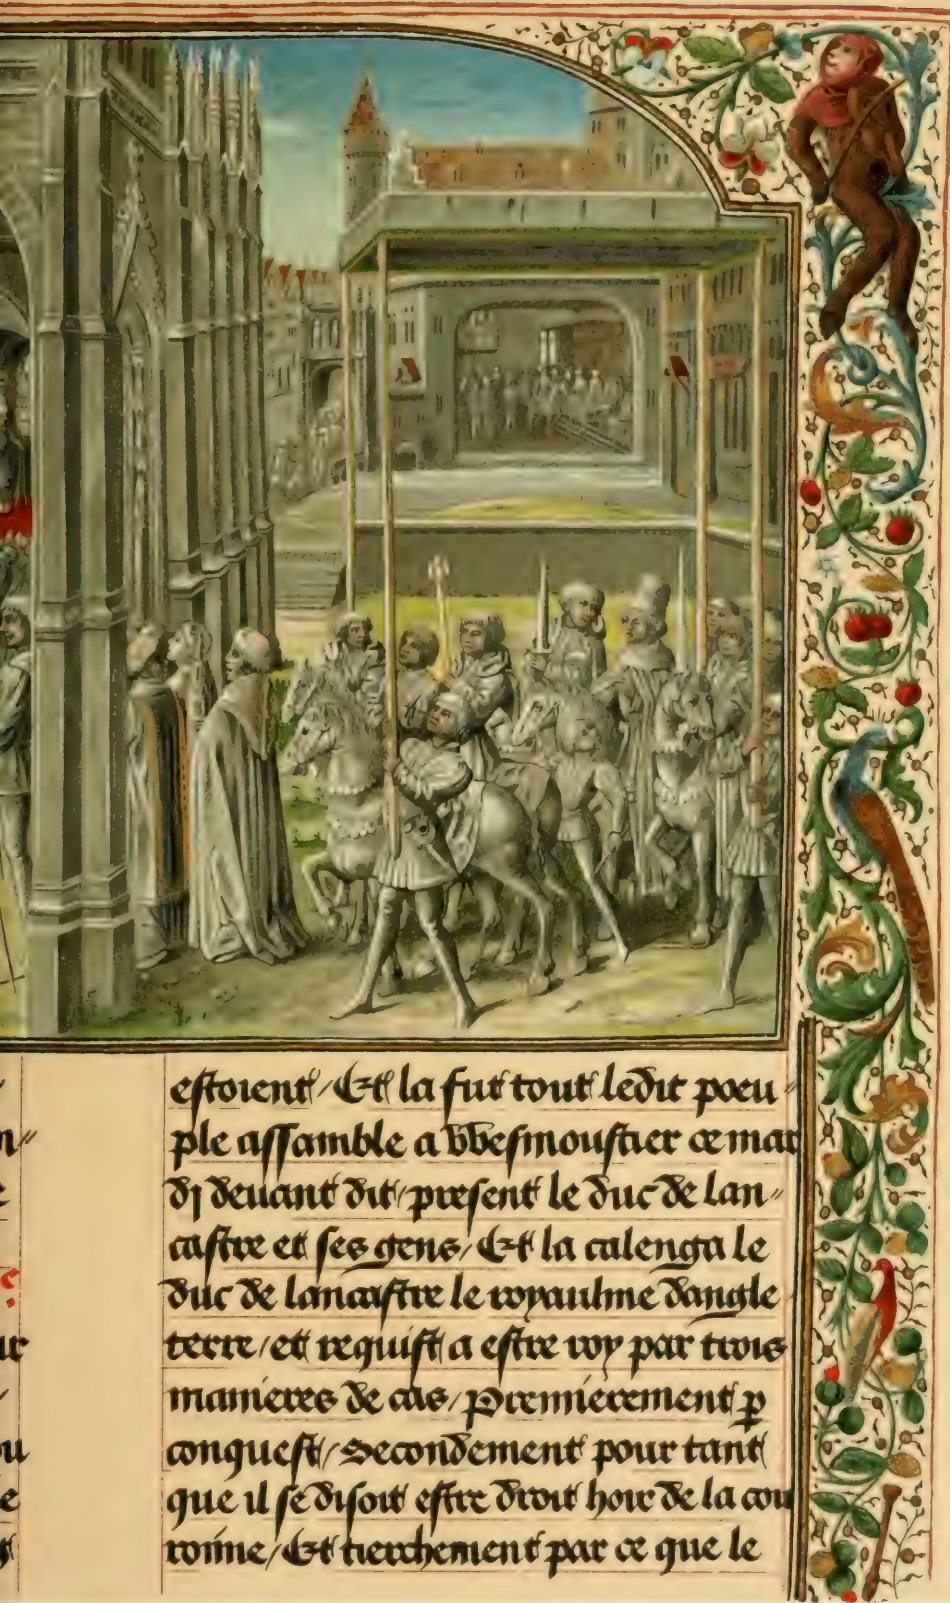 n〃
e
ur
ou
e
estoient / Et la fut tout ledit poeu〃
ple assamble a wesmoustier ce mar
dj deuant dit / present le duc de lan〃
castre et ses gens / Et la calenga le
duc de lancastre le royaulme dangle
terre / et requist a estre roy par trois
manieres de cas / Premierement p̄
conquest / Secondement pour tant
que il se disoit estre droit hoir de la cou
ronne / Et tierchement par ce que le